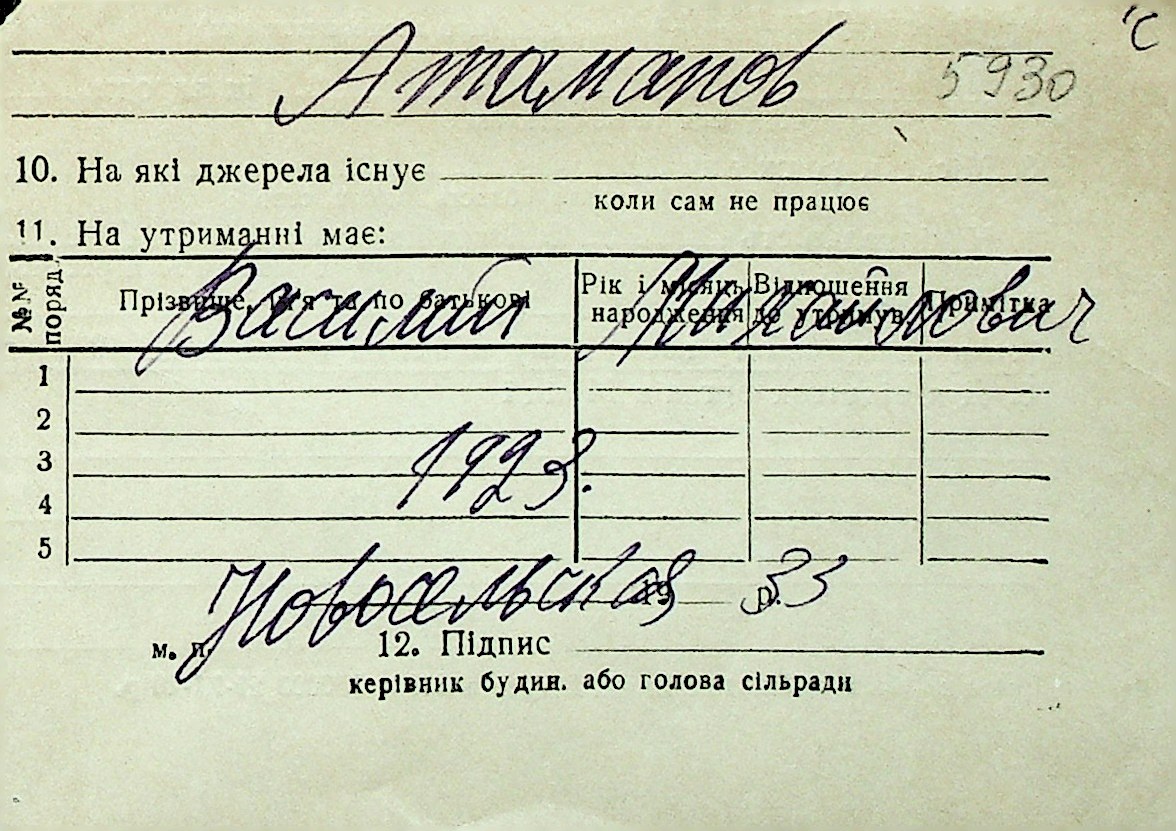 'С
Атаманов 5930
10. На які джерела існує
коли сам не працює
11. На утриманні має:
№№ поряд. Прізвище, ім'я та по батькові Рік і місяць народження Відношення до утримув. Примітка
Василий Михайлович
1
2
3
4
5
1923.
Новосельская 33
19 р.
м. п. 12. Підпис
керівник будин. або голова сільради